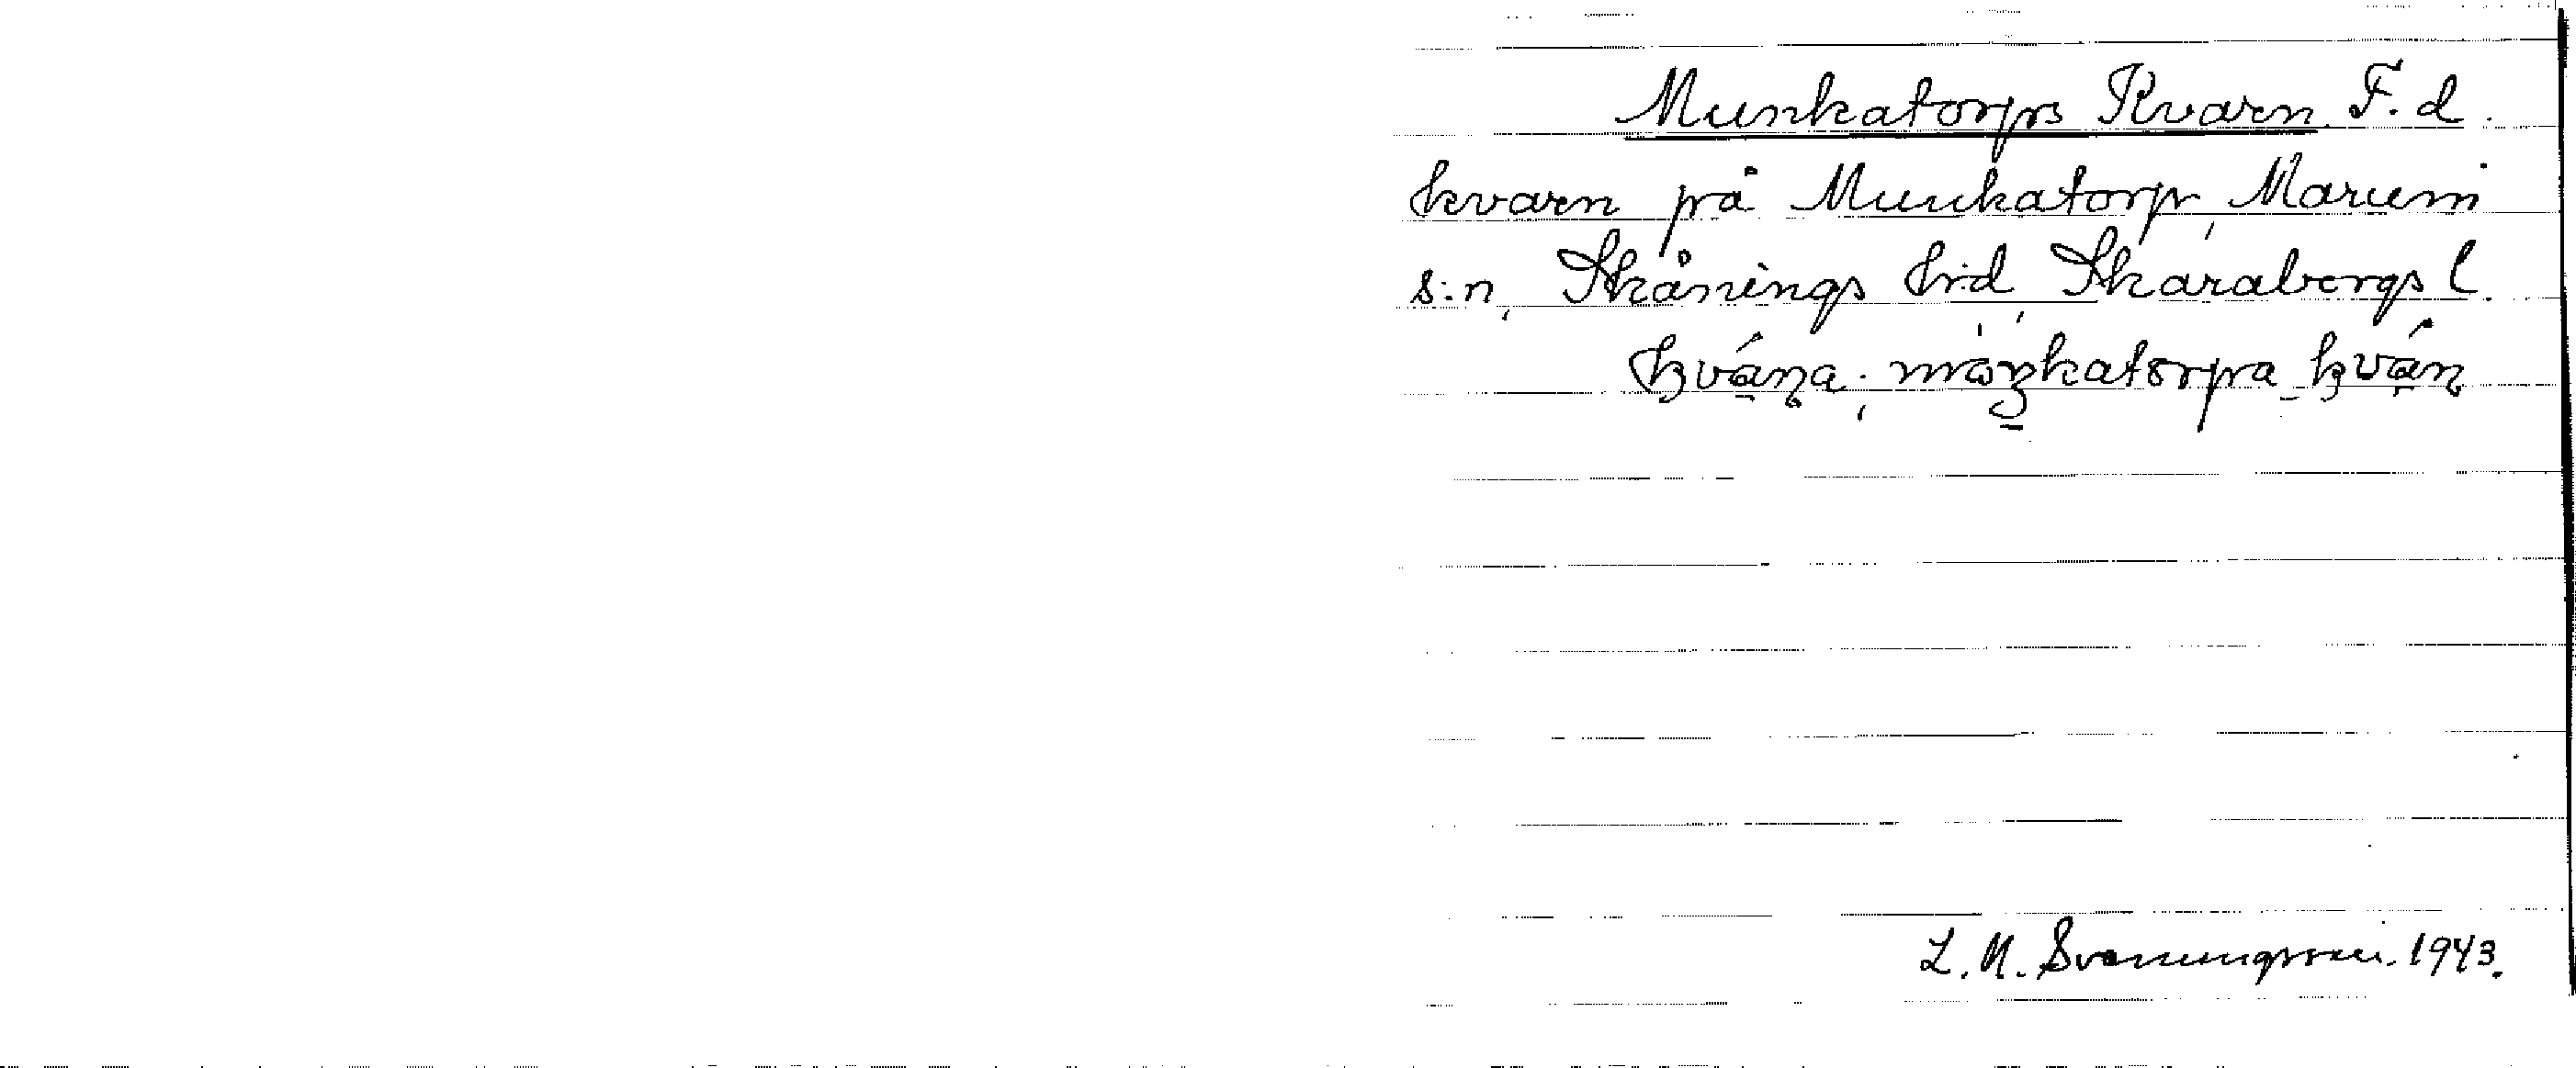 Munkatorps Kvarn. F. d.
kvarn på Munkatorp, Marum
s:n, Skånings h:d, Skarabergs l.
kvána
L. M. Svenungsson. 1943.